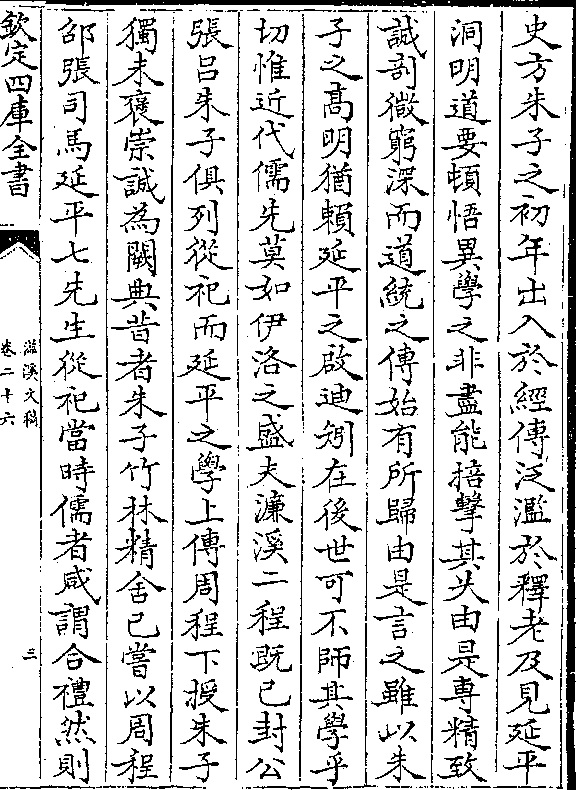 史方朱子之初年出入於經傳泛濫於釋老及見延平
洞明道要頓悟異學之非盡能掊擊其失由是專精致
誠剖微窮深而道統之傳始有所歸由是言之雖以朱
子之髙明猶賴延平之啟迪矧在後世可不師其學乎
切惟近代儒先莫如伊洛之盛夫濂溪二程既已封公
張吕朱子俱列從祀而延平之學上傳周程下授朱子
獨未襃崇誠為闕典昔者朱子竹林精舍已嘗以周程
邵張司馬延平七先生從祀當時儒者咸謂合禮然則
欽定四庫全書
滋溪文稿
卷二十六
三